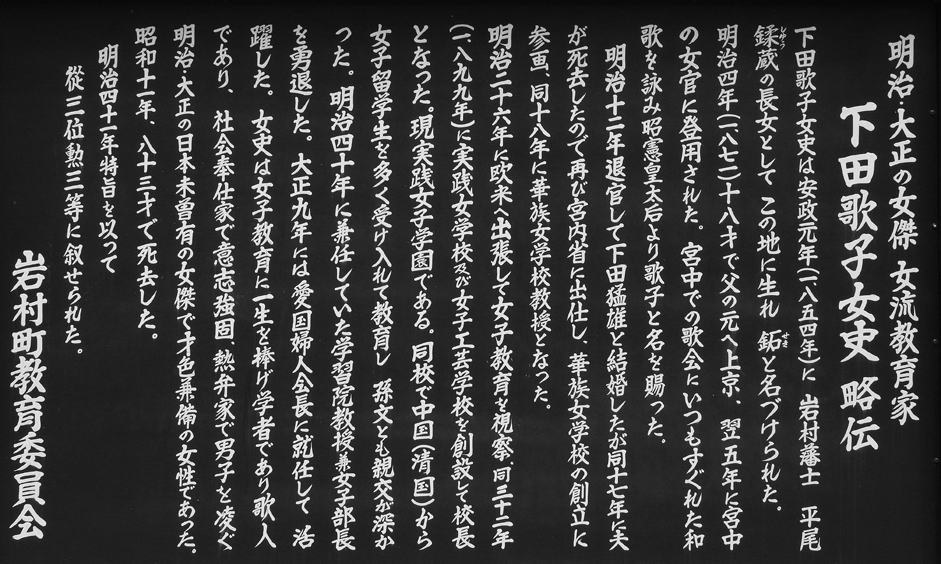 明治・大正の女傑 女流教育家
下田歌子女史 略伝
下田歌子女史は安政元年(一八五四年)に 岩村藩士 平尾
鍒蔵の長女として この地に生れ 鉐と名づけられた。
じゅう
せき
明治四年(一八七一)十八才で父の元へ上京、翌五年に宮中
の女官に登用された。宮中での歌会にいつもすぐれた和
歌を詠み昭憲皇太后より歌子と名を賜った。
明治十二年退官して下田猛雄と結婚したが同十七年に夫
が死去したので再び宮内省に出仕し、華族女学校の創立に
参画、同十八年に華族女学校教授となった。
明治二十六年に欧米へ出張して女子教育を視察、同三十二年
(一八九九年)に実践女学校及び女子工芸学校を創設して校長
となった。現実践女子学園である。同校で中国(清国)から
女子留学生を多く受け入れて教育し 孫文とも親交が深か
った。明治四十年に兼任していた学習院教授兼女子部長
を勇退した。大正九年には愛国婦人会長に就任して 活
躍した。女史は女子教育に一生を捧げ学者であり歌人
であり、社会奉仕家で意志強固、熱弁家で男子を凌ぐ
明治・大正の日本未曽有の女傑で才色兼備の女性であった。
昭和十一年、八十三才で死去した。
明治四十一年特旨を以って
從三位勲三等に叙せられた。
岩村町教育委員会